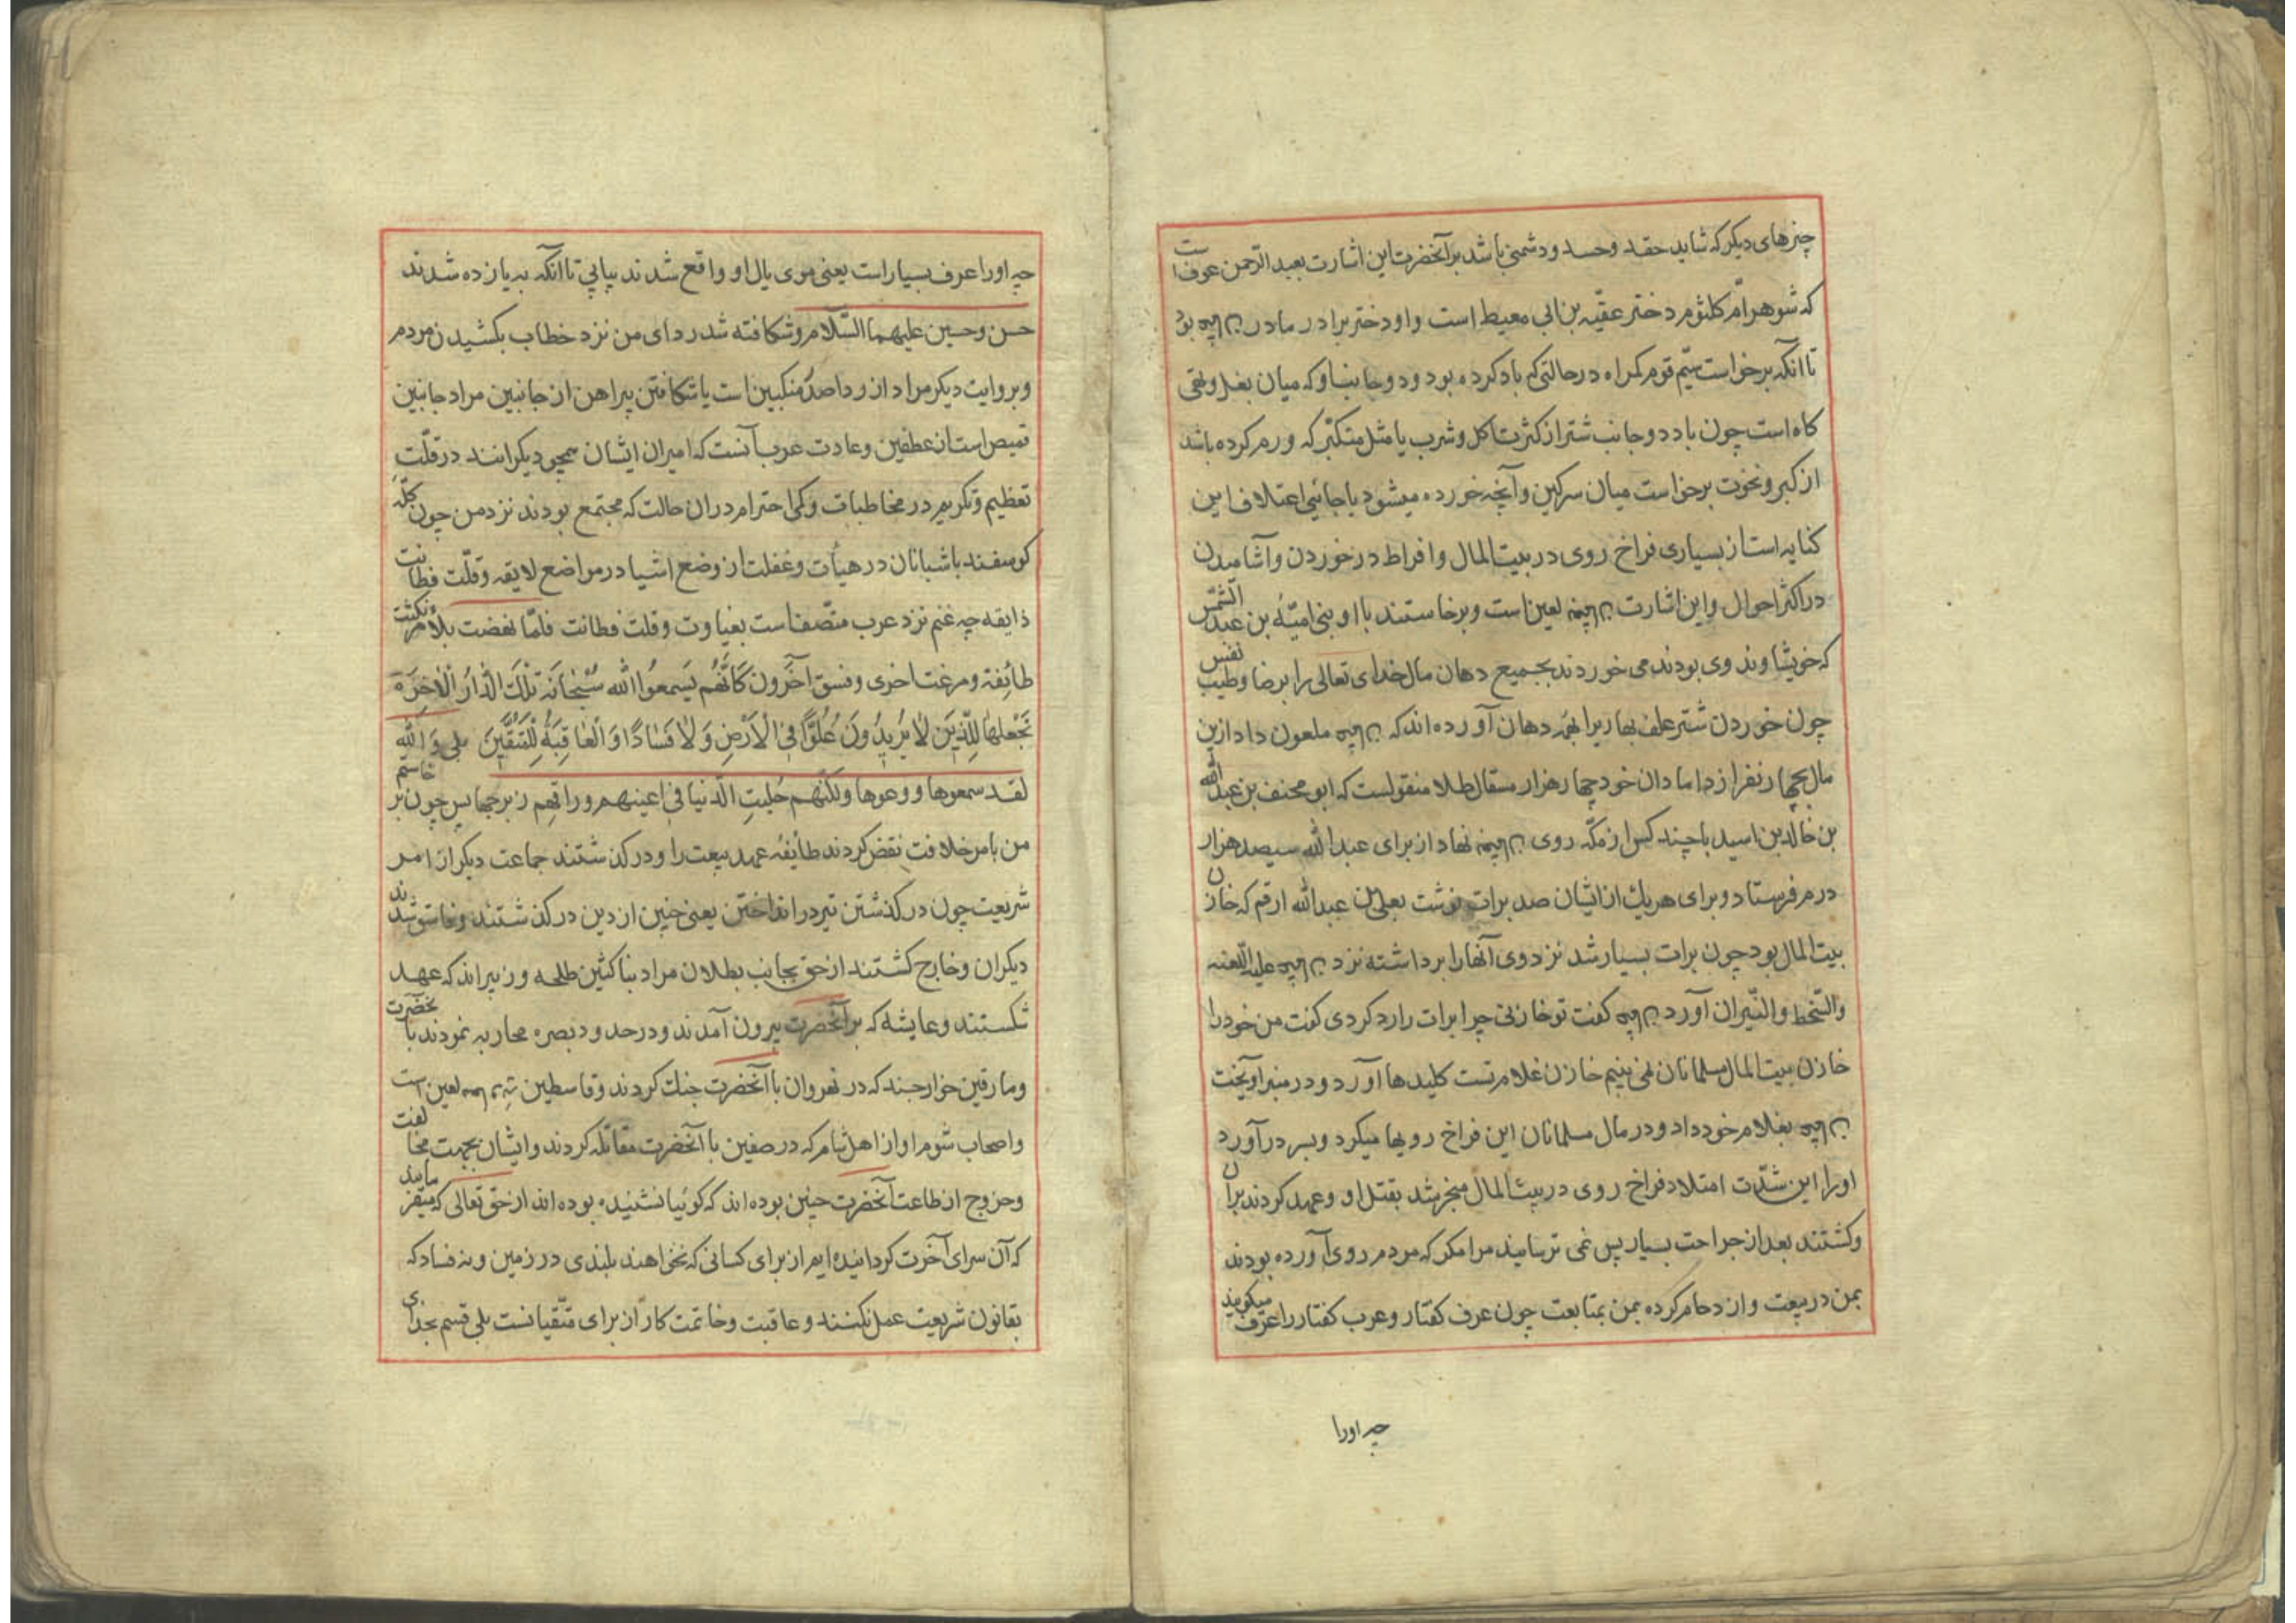 چیزهای دیگر که شاید حقد وحسد ودشمنی باشد برآنحضرت این اشارت بعبد الرحمن عوف است
که شوهر امّ کلثوم دختر عقبه بن ابی معیط است واو دختر برادر مادر بود
تا انکه برخواست سیّم قوم کمراه درحالتی که باد کرده بود ودو جانب اوکه میان بغل وتهی
کاه است چون باد دو جانب شتر از کثرت اکل وشرب یا مثل متکبّر که ورم کرده باشد
از کبر ونخوت برخواست میان سرکین وآنچه خورده میشود یا جائی اعتلاف این
کنایه است از بسیاری فراخ روی در بیت المال وافراط در خوردن وآشامیدن
در اکثر احوال واین اشارت لعین است وبرخاستند با او بنی امیّه بن عبد الشمس
که خویشاوند وی بودند می خوردند بجمیع دهان مال خدای تعالی را برضا وطیب نفس
چون خوردن شتر علف بهاریرا بهمه دهان آورده اند که ملعون داد ازین
مال بچهار نفر از دامادان خود چهار هزار مسقال طلا منقولست که ابو مخنف بن عبد الله
بن خالد بن اسید با چند کس از مکّه روی نهاد از برای عبد الله سیصد هزار
درم فرستاد وبرای هر یك از ایشان صد برات نوشت بعلی بن عبد الله ارقم که خازن
بیت المال بود چون برات بسیار شد نزد وی آنها را برداشته نزد علیه اللعنه
والسّخط والنّیران آورد کفت تو خازنی چرا برات را رد کردی کفت من خود را
خازن بیت المال مسلمانان نمی بینم خازن غلام تست کلیدها آورد ودر منبر اویخت
بغلام خود داد ودر مال مسلمانان این فراخ رویها میکرد وبسر درآورد
او را این شدّت امتلاد فراخ روی در بیت المال منجر شد بقتل او وعهد کردند بران
وکشتند بعد از جراحت بسیار پس نمی ترسانید مرا مکر که مردم روی آورده بودند
بمن در بیعت وازدحام کرده بمن بمتابعت چون عرف کفتار وعرب کفتار را عرف میکویند
چه اورا
چه اورا عرف بسیار است یعنی موی یال او واقع شدند پیاپی تا انکه به یازده شدند
حسن وحسین علیهما السّلام وشکافته شد ردای من نزد خطاب بکشیدن مردم
وبروایت دیکر مراد از ردا صدر منکبین است یا شکافتن پیراهن از جانبین مراد جانبین
قمیص است از عطفین وعادت عرب آنست که امیران ایشان همچو دیکرانند در قلّت
تعظیم وتکریم در مخاطبات وکمی احترام دران حالت که مجتمع بودند نزد من چون کلّهٔ
کوسفند با شبانان در هیأت وغفلت از وضع اشیا در مواضع لایقه وقلّت فطانت
ذایقه چه غنم نزد عرب متّصف است بغباوت وقلت فطانت فلمّا نهضت بالأمر نکثت
طائِفة ومرغت اخری وفسق آخَرون کَانَّهُم یَسمعُوا الله سُبْحٰانَهُ تِلْكَ الدّٰارُ الْاٰخِرَة
نَجْعَلُهٰا لِلَّذِیَن لٰا یُرِیدُونَ عُلُوًّا فِی الْاَرْضِ وَلٰا فَسٰادًا وَالْعٰاقِبَةُ لِلْمُتَّقِیَن بلی وَالله
لقد سمعوها ووعوها ولکنّهم حُلِیتِ الدّنیا فی اعینهم وراقهم زبرجها پس چون برخاستم
من بامر خلافت نقض کردند طایفهٔ عهد بیعت را ودر کذشتند جماعت دیکر از امر
شریعت چون درکذشتن تیر در انداختن یعنی چنین از دین درکذشتند وفاسق شدند
دیکران وخارج کشتند از حق بجانب بطلان مراد بناکثین طلحه وزبیراند که عهد
شکستند وعایشه که برآنحضرت بیرون آمدند ودرحدود بصره محاربه نمودند با نحضرت
ومارقین خوارجند که در نهروان با آنحضرت جنك کردند وقاسطین لعین است
واصحاب شوم او از اهل شام که در صفین با آنحضرت مقاتله کردند وایشان بجهت مخالفت
وخروج از طاعت آنحضرت چنین بوده اند که کوئیا نشنیده بوده اند از حق تعالی که میفرماید
که آن سرای آخرت کردانیده ایم از برای کسانی که نخواهند بلندی در زمین ونه فساد که
بقانون شریعت عمل نکنند وعاقبت وخاتمت کار از برای متّقیانست بلی قسم بخدای